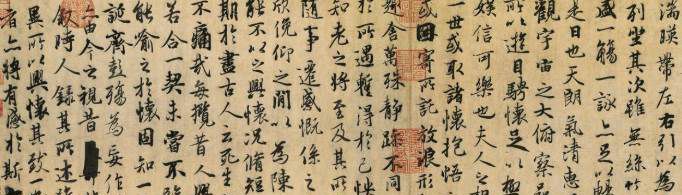 湍暎帶左右引以為
列坐其次雖無絲竹
盛一觴一詠亦足以暢
是日也天朗氣清惠
觀宇宙之大俯察
所以遊目騁懷足以極
娛信可樂也夫人之相
一世或取諸懷抱悟
或因寄所託放浪形
趣舍萬殊靜躁不同
於所遇蹔得於己怏
知老之將至及其所
隨事遷感慨係之
欣俛仰之閒以為陳
能不以之興懷況脩短
期於盡古人云死生
不痛哉每攬昔人興
若合一契未嘗不臨
能喻之於懷固知一
誕齊彭殤為妄作
亦由今之視昔
敘時人錄其所述
異所以興懷其致
者亦將有感於斯